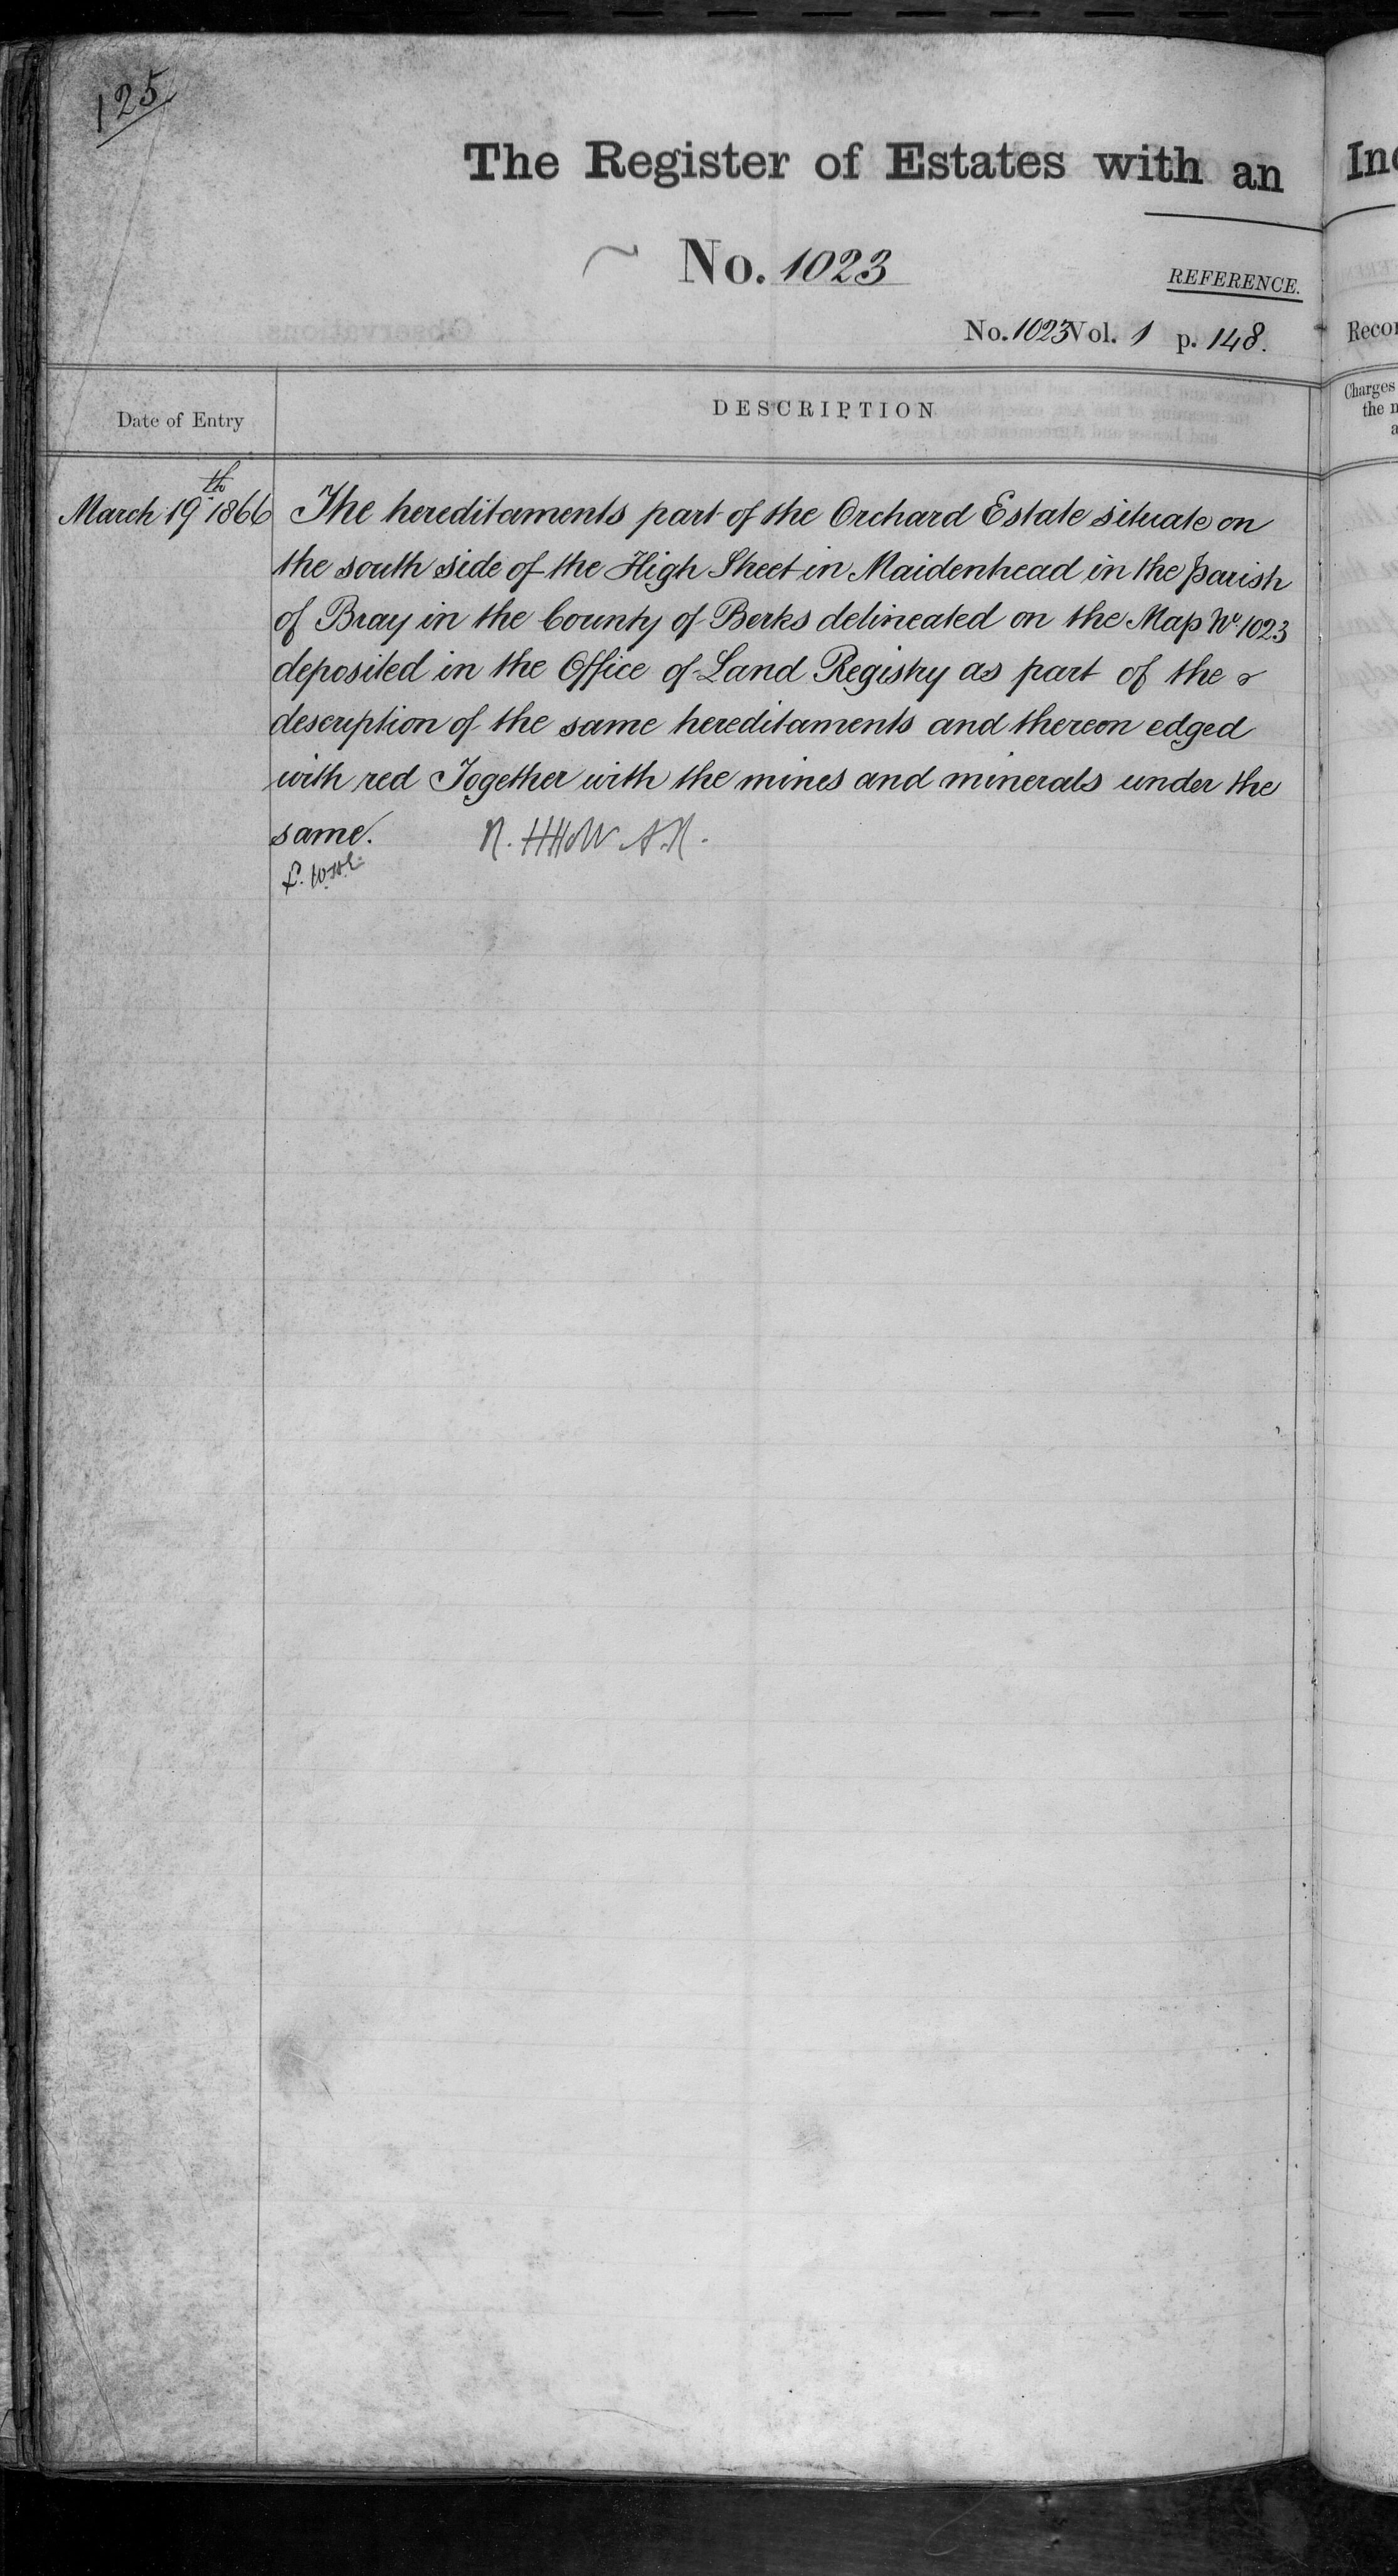 125
The Register of Estates with an
No. 1023
REFERENCE.
No. 1023 Vol. 1 p. 148.
Date of Entry
DESCRIPTION
March 19th 1866 The hereditaments part of the Orchard Estate situate on
the south side of the High Street in Maidenhead in the parish
of Bray in the County of Berks delineated on the Map No. 1023
deposited in the Office of Land Registry as part of the
description of the same hereditaments and thereon edged
with red Together with the mines and minerals under the
same.
Charges
the